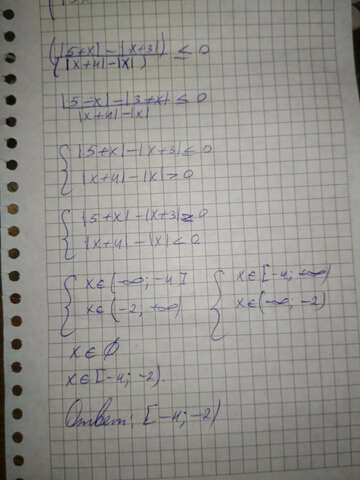 (|5+x|-|x+3|)/(|x+4|-|x|) ≤ 0
|5-x|-|3+x| ≤ 0
|x+4|-|x|
{ |5+x|-|x+3| ≤ 0
|x+4|-|x| > 0
{ |5+x|-|x+3| ≥ 0
|x+4|-|x| < 0
{ x∈(-∞; -4] { x∈[-4; +∞)
x∈(-2, +∞) x∈(-∞; -2)
x∈∅
x∈[-4; -2).
Ответ: [-4; -2)